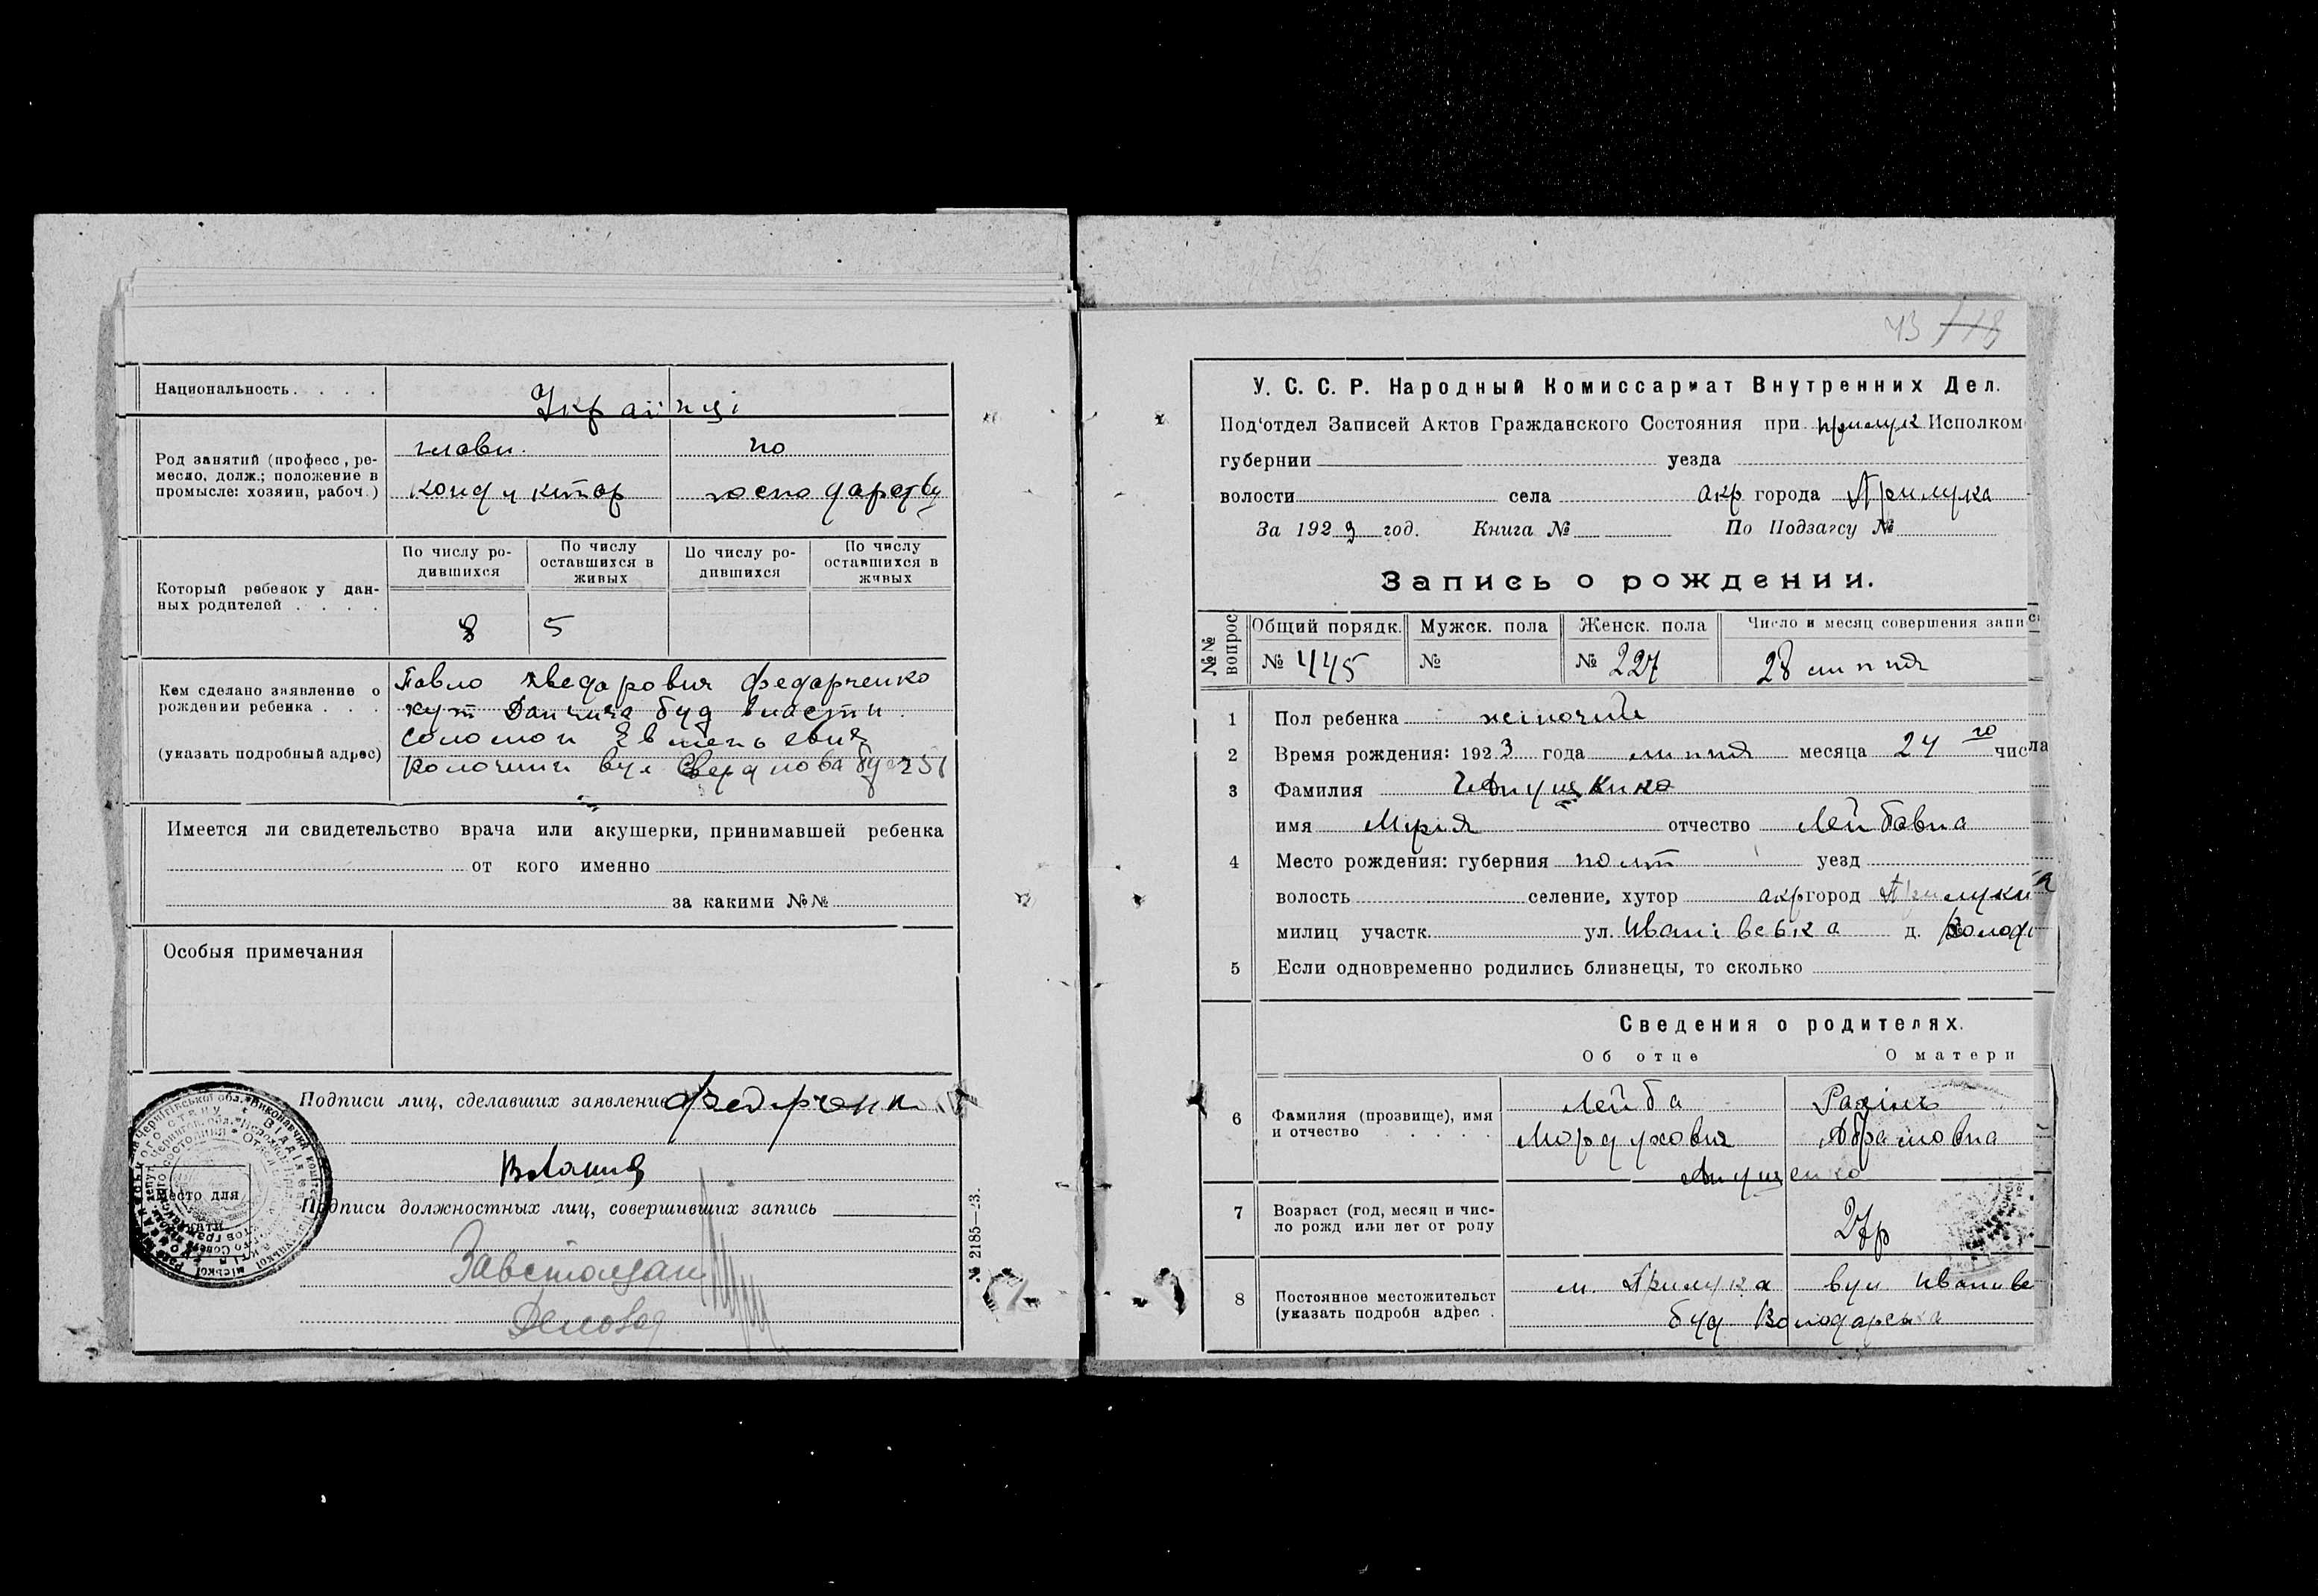 Национальность. . . .
Українці
Род занятий (професс, ре-
месло, долж.; положение в
промысле: хозяин, рабоч.)
главн. по
кондуктор господарству
Который ребенок у дан-
ных родителей . . . .
По числу ро-
дившихся
По числу
оставшихся в
живых
По числу ро-
дившихся
По числу
оставшихся в
живых
8 5
Кем сделано заявление о
рождении ребенка . . .
(указать подробный адрес)
Павло Хведарович Федарченко
хут буд власти.
Соломон
вул Свердлова
Имеется ли свидетельство врача или акушерки, принимавшей ребенка
от кого именно
за какими №№
Особыя примечания
Подписи лиц, сделавших заявление
Место для
печати
Подписи должностных лиц, совершивших запись
Завстолом
№ 2185—23.
43 718
У. С. С. Р. Народный Комиссариат Внутренних Дел.
Под'отдел Записей Актов Гражданского Состояния при Прилук Исполком
губернии уезда
волости села окр города Прилука
За 1923 год. Книга № По Подзагсу №
Запись о рождении.
№№
вопрос
Общий порядк. Мужск. пола Женск. пола Число и месяц совершения запис
№ 445 № № 227 28 липня
1 Пол ребенка жіночий
2 Время рождения: 1923 года липня месяца 24 го числа
3 Фамилия
имя Мирія отчество Лейбовна
4 Место рождения: губерния полт уезд
волость селение, хутор окр город Прилука
милиц участк. ул. Иванівська д. Волода
5 Если одновременно родились близнецы, то сколько
Сведения о родителях.
Об отце О матери
6 Фамилия (прозвище), имя
и отчество . . . . .
Лейба Рахіль
Мордухович Абрамовна
7 Возраст (год, месяц и чис-
ло рожд или лет от роду
27 р
8 Постоянное местожительст
(указать подробн адрес .
м. Прилука вул Иванівс
буд Володарська